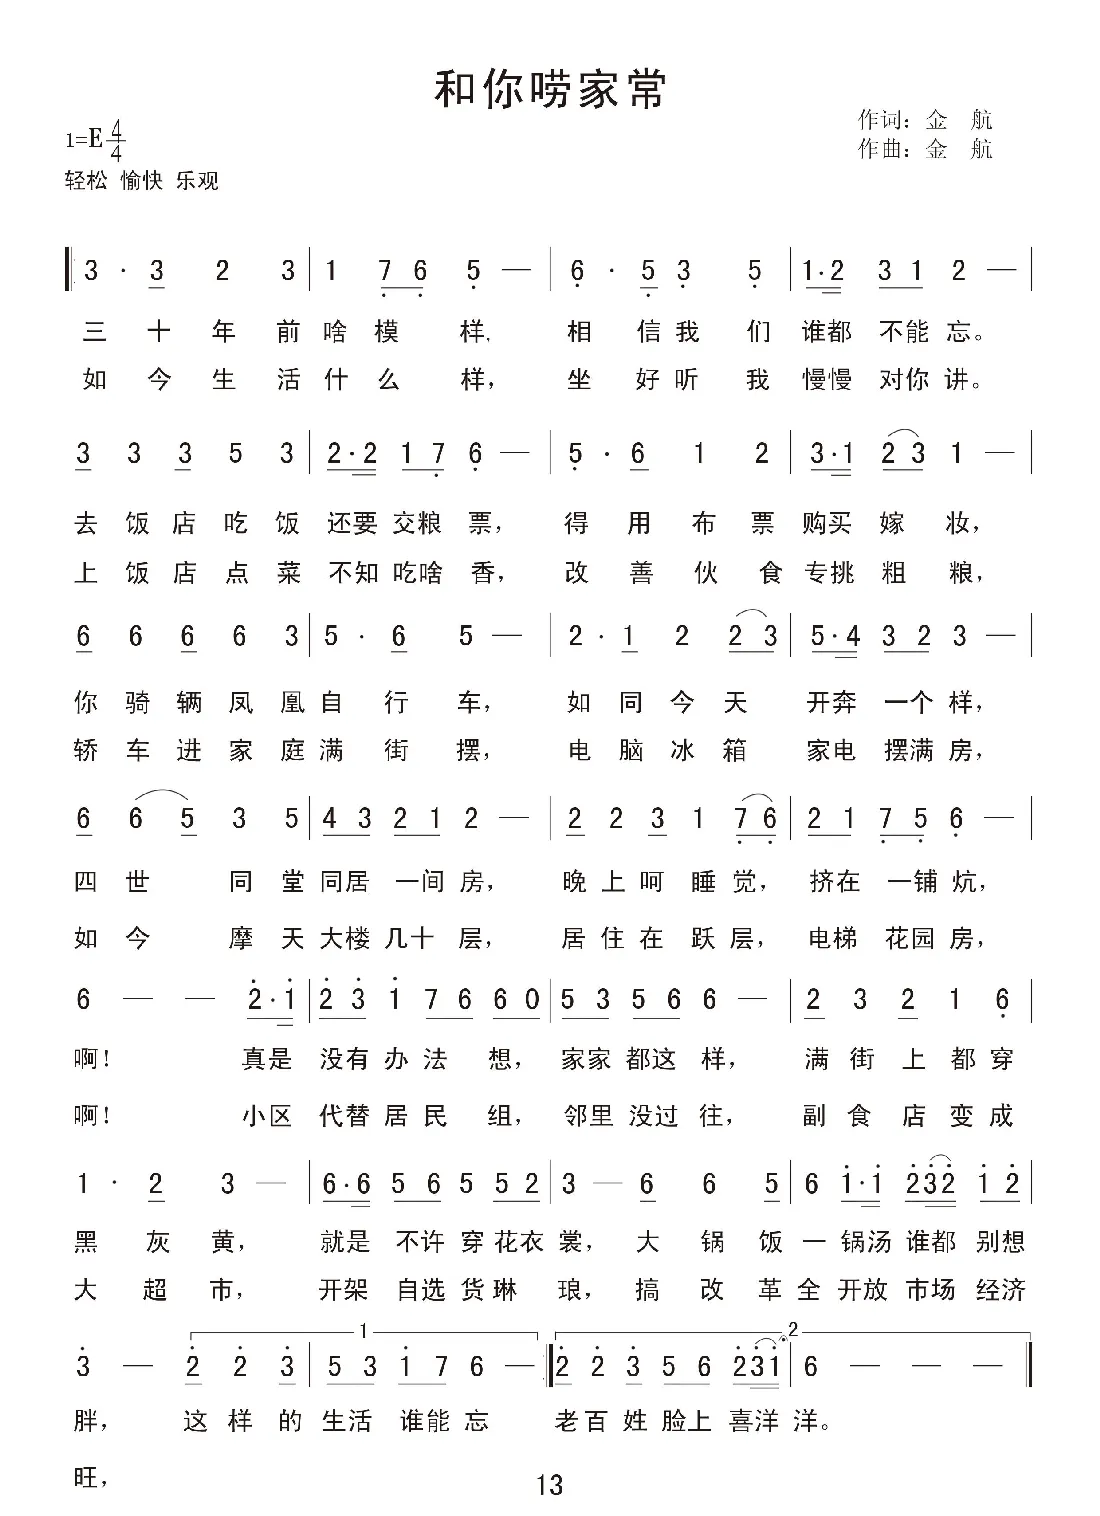 和你唠家常
作词：金 航
1=E 4/4
作曲：金 航
轻松 愉快 乐观
3 · 3 2 3 | 1 7 6 5 — | 6 · 5 3 5 | 1·2 3 1 2 — |
三 十 年 前 啥 模 样, 相 信 我 们 谁都 不能 忘。
如 今 生 活 什 么 样, 坐 好 听 我 慢慢 对你 讲。
3 3 3 5 3 | 2·2 1 7 6 — | 5 · 6 1 2 | 3·1 2 3 1 — |
去 饭 店 吃 饭 还要 交粮 票, 得 用 布 票 购买 嫁 妆,
上 饭 店 点 菜 不知 吃啥 香, 改 善 伙 食 专挑 粗 粮,
6 6 6 6 3 | 5 · 6 5 — | 2 · 1 2 2 3 | 5·4 3 2 3 — |
你 骑 辆 凤 凰 自 行 车, 如 同 今 天 开奔 一个 样,
轿 车 进 家 庭 满 街 摆, 电 脑 冰 箱 家电 摆满 房,
6 6 5 3 5 | 4 3 2 1 2 — | 2 2 3 1 7 6 | 2 1 7 5 6 — |
四 世 同 堂 同居 一间 房, 晚 上 呵 睡 觉, 挤在 一铺 炕,
如 今 摩 天 大楼 几十 层, 居 住 在 跃 层, 电梯 花园 房,
6 — — 2·1 | 2 3 1 7 6 6 0 | 5 3 5 6 6 — | 2 3 2 1 6 |
啊! 真是 没有 办 法 想, 家家 都这 样, 满 街 上 都 穿
啊! 小区 代替 居 民 组, 邻里 没过 往, 副 食 店 变 成
1 · 2 3 — | 6·6 5 6 5 5 2 | 3 — 6 6 5 | 6 1·1 2 3 2 1 2 |
黑 灰 黄, 就是 不许 穿 花衣 裳, 大 锅 饭 一 锅汤 谁都 别想
大 超 市, 开架 自选 货 琳 琅, 搞 改 革 全 开放 市场 经济
1 2
3 — 2 2 3 | 5 3 1 7 6 — :| 2 2 3 5 6 2 3 1 | 6 — — — |
胖, 这 样 的 生活 谁能 忘 老 百 姓 脸上 喜洋 洋。
旺,
13